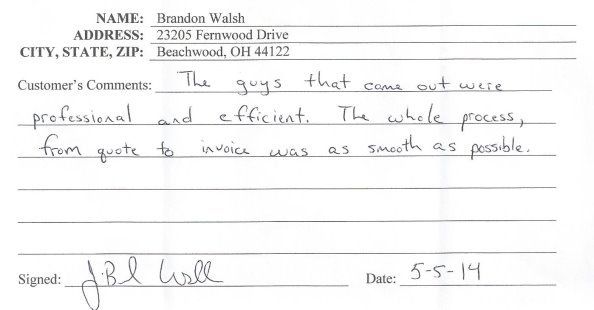 NAME: Brandon Walsh
ADDRESS: 23205 Fernwood Drive
CITY, STATE, ZIP: Beachwood, OH 44122
Customer's Comments: The guys that came out were
professional and efficient. The whole process,
from quote to invoice was as smooth as possible.
Signed: Date: 5-5-14